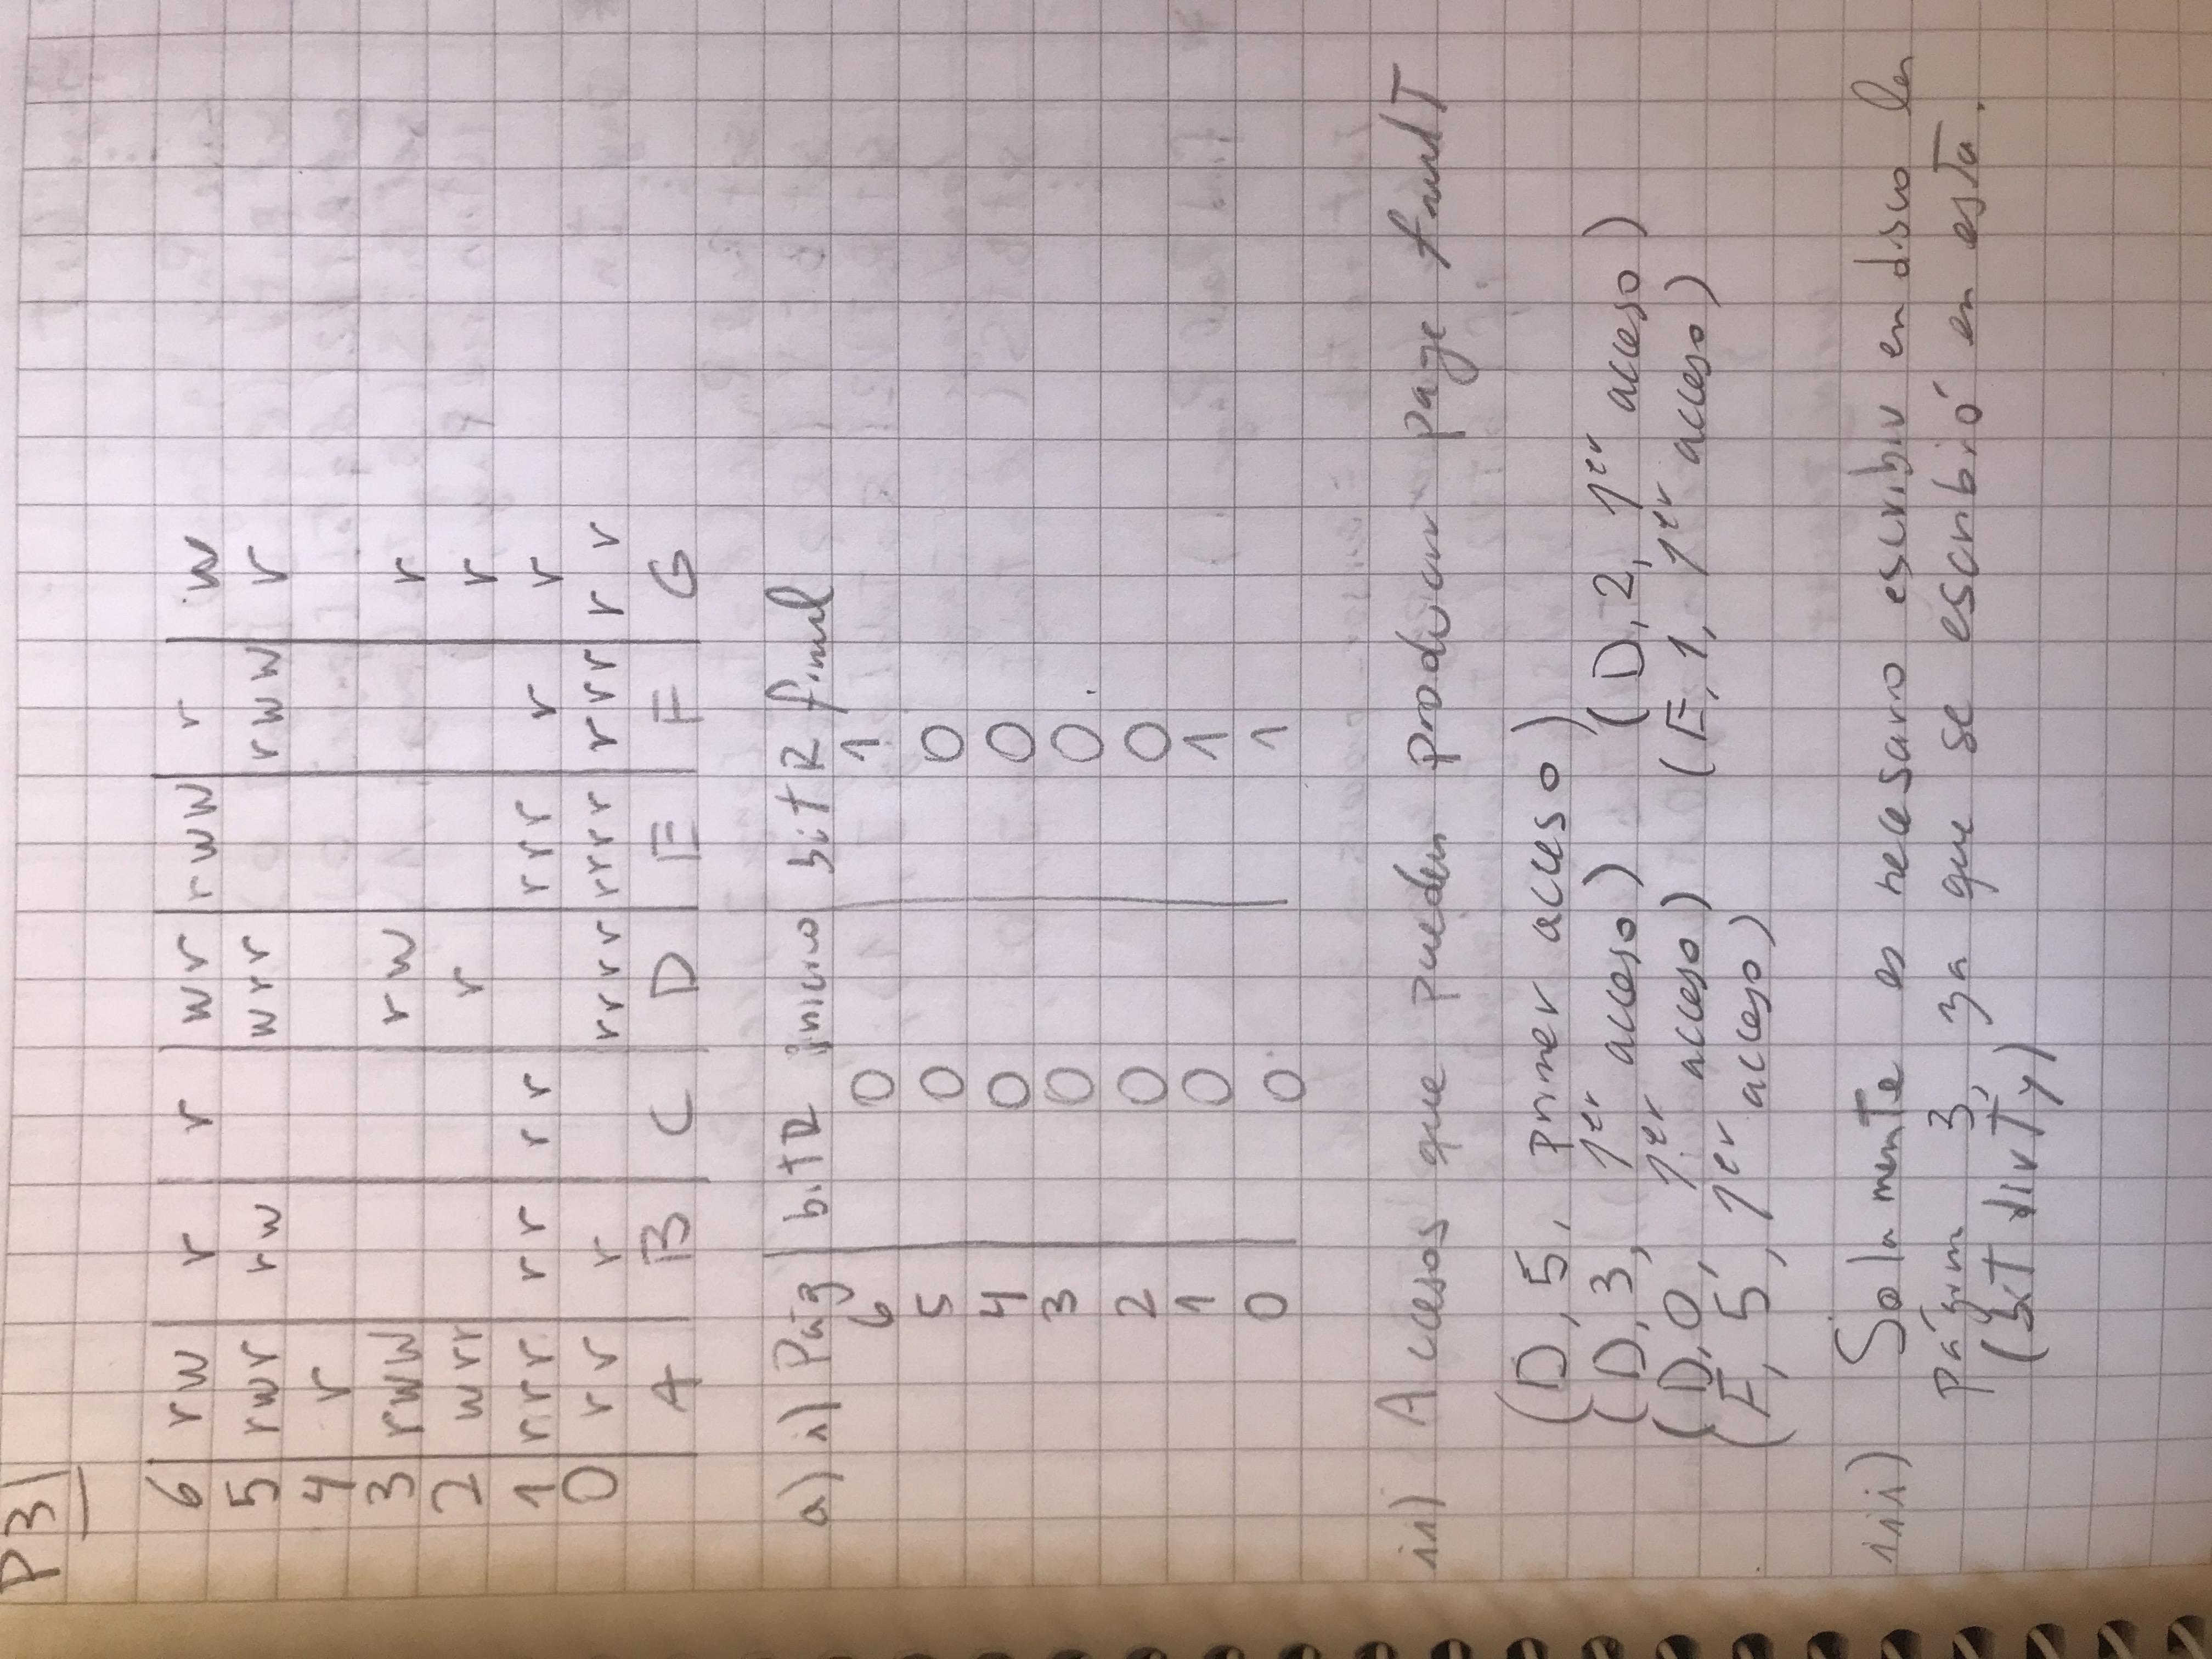 P3
6 | rw | r | r | wr | rww | r | w
5 | rwr | rw | | wrr | | rww | r
4 | r
3 | rww | | | rw | | | r
2 | wrr | | | r | | | r
1 | rrr | rr | rr | | rrr | r | r
0 | rr | r | | rrrr | rrrr | rrr | rr
A | B | C | D | E | F | G
a) i) Pág | bit R inicio | bit R final
6 | 0 | 1
5 | 0 | 0
4 | 0 | 0
3 | 0 | 0
2 | 0 | 0
1 | 0 | 1
0 | 0 | 1
ii) Accesos que pueden producir page fault
(D, 5, primer acceso)
(D, 3, 1er acceso) (D, 2, 1er acceso)
(D, 0, 1er acceso) (E, 1, 1er acceso)
(F, 5, 1er acceso)
iii) Solamente es necesario escribir en disco la
página 3, ya que se escribió en esta.
(bit dirty)